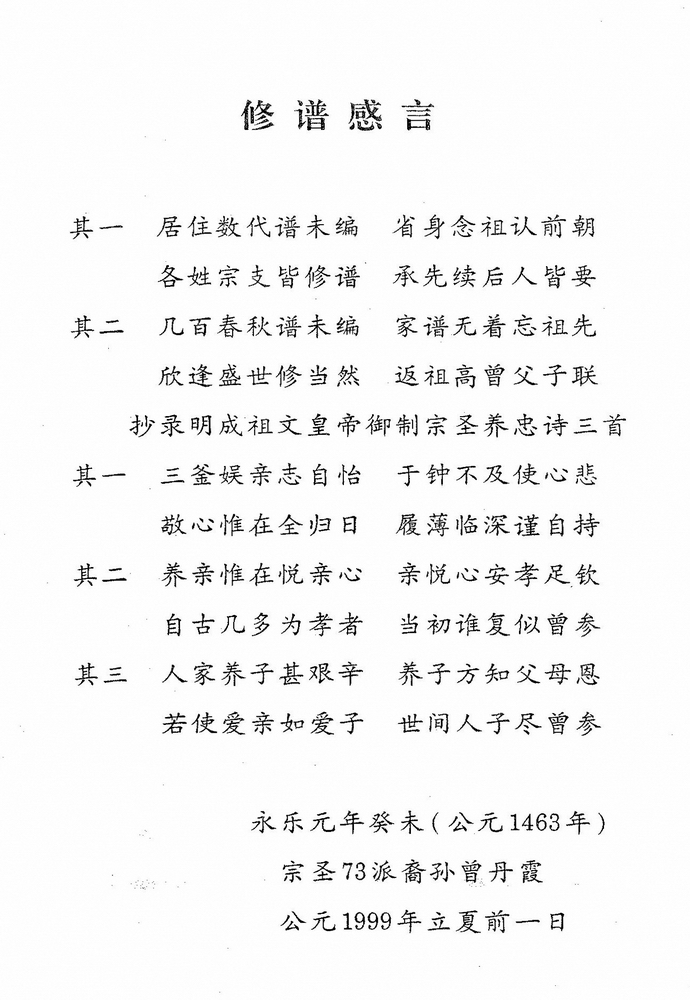 修谱感言
其一 居住数代谱未编 省身念祖认前朝
各姓宗支皆修谱 承先续后人皆要
其二 几百春秋谱未编 家谱无着忘祖先
欣逢盛世修当然 返祖高曾父子联
抄录明成祖文皇帝御制宗圣养忠诗三首
其一 三釜娱亲志自怡 于钟不及使心悲
敬心惟在全归日 履薄临深谨自持
其二 养亲惟在悦亲心 亲悦心安孝足钦
自古几多为孝者 当初谁复似曾参
其三 人家养子甚艰辛 养子方知父母恩
若使爱亲如爱子 世间人子尽曾参
永乐元年癸未(公元1463年)
宗圣73派裔孙曾丹霞
公元1999年立夏前一日